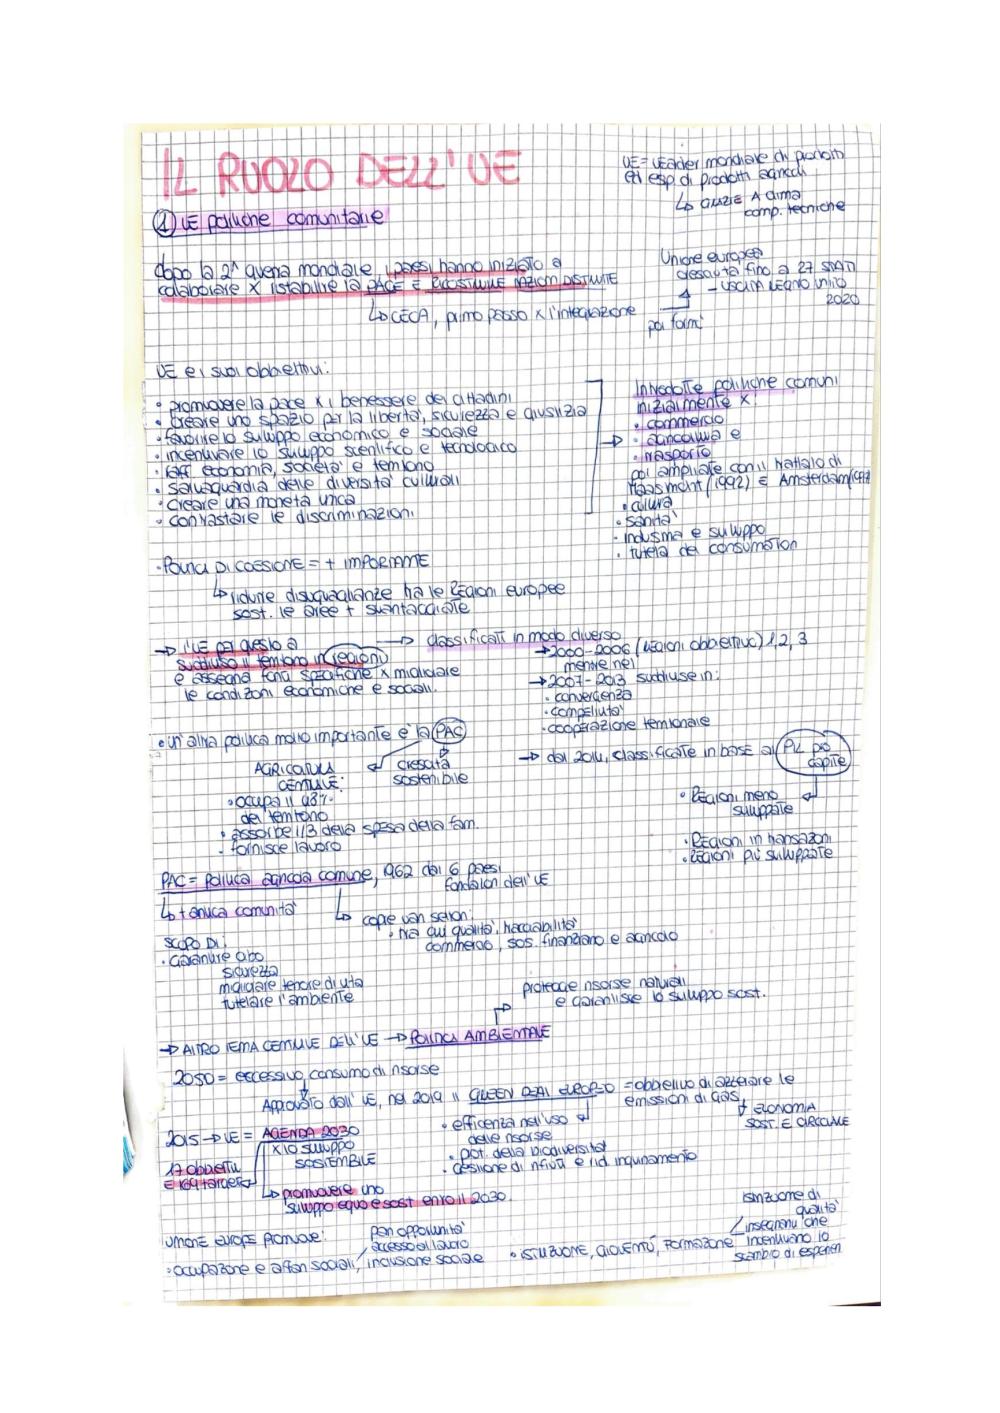 IL RUOLO DELL'UE
UE = leader mondiale di prodotti
ed esp. di prodotti agricoli
↳ GRAZIE A clima
comp. tecniche
① LE politiche comunitarie
dopo la 2^ guerra mondiale i paesi hanno iniziato a
collaborare x ristabilire la PACE E RICOSTRUIRE NAZIONI DISTRUTTE
↳ CECA, primo passo x l'integrazione
Unione europea
cresciuta fino a 27 STATI
- USCITA REGNO UNITO
2020
poi formò
UE e i suoi obbiettivi:
• promuovere la pace x i benessere dei cittadini
• creare uno spazio per la libertà, sicurezza e giustizia
• favorire lo sviluppo economico e sociale
• incentivare lo sviluppo scientifico e tecnologico
• raff. economia, società e territorio
• salvaguardia delle diversità culturali
• creare una moneta unica
• contrastare le discriminazioni
Introdotte politiche comuni
inizialmente x:
• commercio
• agricoltura e
• trasporto
poi ampliate con il trattato di
Maastricht (1992) E Amsterdam (1997
• cultura
• sanità
• industria e sviluppo
• tutela dei consumatori
• POLITICA DI COESIONE = + IMPORTANTE
↳ ridurre disuguaglianze tra le Regioni europee
sost. le aree + svantaggiate
→ l'UE per questo ha
suddiviso il territorio in regioni
e assegna fondi specifiche x migliorare
le condizioni economiche e sociali.
→ classificati in modo diverso
→ 2000-2006 (regioni obbiettivo) 1, 2, 3
mentre nel
→ 2007-2013 suddiuse in:
• convergenza
• compelività
• cooperazione territoriale
→ dal 2014, classificate in base al PIL pro
capite
• Regioni meno
sviluppate
• Regioni in transazoni
• Regioni più sviluppate
• un'altra politica molto importante è la PAC
crescita
sostenibile
AGRICOLTURA
CENTRALE:
• occupa il 48%
del territorio
• assorbe 1/3 della spesa della fam.
• fornisce lavoro
PAC = politica agricola comune, 1962 dai 6 paesi
fondatori dell'UE
↳ + antica comunità
↳ copre vari settori:
• tra cui qualità, tracciabilità
commercio, sos. finanziario e agricolo
SCOPO DI:
• Garantire cibo
sicurezza
migliorare tenore di vita
tutelare l'ambiente
protegge risorse naturali
e garantisce lo sviluppo sost.
→ ALTRO TEMA CENTRALE DELL'UE → POLITICA AMBIENTALE
2050 = eccessivo consumo di risorse
Approvato dall'UE, nel 2019 il GREEN DEAL EUROPEO = obbiettivo di azzerare le
emissioni di gas
ECONOMIA
SOST. E CIRCOLARE
• efficenza nell'uso
delle risorse
• pot. della biodiversità
• gestione di rifiuti e rid. inquinamento
2015 → UE = AGENDA 2030
x lo sviluppo
SOSTENIBILE
17 obbiettivi
E 169 targets
↳ promuovere uno
sviluppo equo e sost. entro il 2030.
UNIONE EUROPE promuove:
pari opportunità
accesso al lavoro
• occupazione e affari sociali, inclusione sociale
• ISTRUZIONE, GIOVENTÙ, FORMAZIONE
istruzione di
qualità
insegnanti che
incentivano lo
scambio di esperien